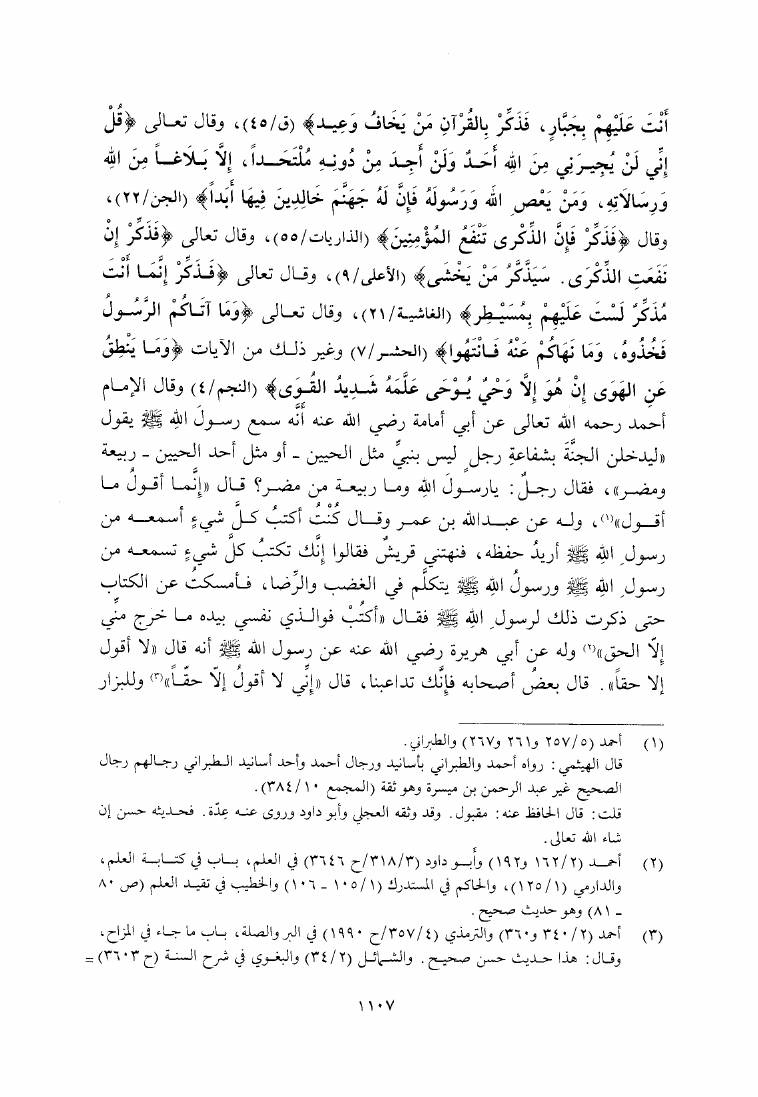 أَنْتَ عَلَيْهِمْ بِجَبَّارٍ، فَذَكِّرْ بِالقُرْآنِ مَنْ يَخَافُ وَعِيـد﴾ (ق/٤٥)، وقال تعـالى ﴿قُلْ
إِنِّي لَنْ يُجِيـرَنِي مِنَ اللهِ أَحَـدٌ وَلَنْ أَجِـدَ مِنْ دُونِـهِ مُلْتَحَـداً، إِلَّا بَـلَاغـاً مِنَ اللهِ
وَرِسَالَاتِهِ، وَمَنْ يَعْصِ اللهَ وَرَسُولَهُ فَإِنَّ لَهُ جَهَنَّمَ خَالِدِينَ فِيهَا أَبَداً﴾ (الجن/٢٢)،
وقال ﴿فَذَكِّرْ فَإِنَّ الذِّكْرى تَنْفَعُ المُؤْمِنِينَ﴾ (الذاريات/٥٥)، وقال تعالى ﴿فَذَكِّرْ إِنْ
نَفَعَتِ الذِّكْرَى. سَيَذَّكَّرُ مَنْ يَخْشَى﴾ (الأعلى/٩)، وقـال تعالى ﴿فَـذَكِّرْ إِنَّمَـا أَنْتَ
مُذَكِّرٌ لَسْتَ عَلَيْهِمْ بِمُسَيْـطِرٍ﴾ (الغاشيـة/٢١)، وقال تعـالى ﴿وَمَا آتَـاكُمْ الرَّسُـولُ
فَخُذُوهُ، وَمَا نَهَاكُمْ عَنْهُ فَـانْتَهُوا﴾ (الحشـر/٧) وغير ذلـك من الآيات ﴿وَمَـا يَنْطِقُ
عَنِ الهَوَى إِنْ هُوَ إِلَّا وَحْيٌ يُـوْحَى عَلَّمَهُ شَـدِيدُ القُـوَى﴾ (النجم/٤) وقال الإمـام
أحمد رحمه الله تعالى عن أبي أمامة رضي الله عنه أنَّه سمع رسـولَ اللهِ ﷺ يقول
«ليدخلن الجنَّةَ بشفاعةِ رجلٍ ليس بنبيٍّ مثل الحيين - أو مثل أحد الحيين - ربيعة
ومضـر»، فقال رجـلٌ: يارسـولَ الله ومـا ربيعـة من مضـر؟ قـال «إِنَّمـا أقـولُ مـا
أقـول»(١)، ولـه عن عبـدالله بن عمـر وقـال كُنْتُ أكتبُ كـلَّ شيءٍ أسمعـه من
رسولِ اللهِ ﷺ أريدُ حفظه، فنهتني قريشٌ فقالوا إنَّك تكتبُ كلَّ شيءٍ تسمعـه من
رسولِ اللهِ ﷺ ورسولُ اللهِ ﷺ يتكلَّم في الغضب والرِّضا، فـأمسكتُ عن الكتابِ
حتى ذكرت ذلك لرسولِ اللهِ ﷺ فقـال «أكتُبْ فوالـذي نفسي بيده مـا خرج منِّي
إلّا الحق»(٢) وله عن أبي هريرة رضي الله عنه عن رسول الله ﷺ أنه قال «لا أقول
إلا حقاً». قال بعضُ أصحابه فإنَّك تداعبنا، قال «إنِّي لا أقولُ إلّا حقّـاً»(٣) وللبزار
(١) أحمد (٢٥٧/٥ و٢٦١ و٢٦٧) والطبراني.
قال الهيثمي: رواه أحمد والطبراني بأسانيد ورجال أحمد وأحد أسانيد الـطبراني رجـالهم رجال
الصحيح غير عبد الرحمن بن ميسرة وهو ثقة (المجمع ٣٨٤/١٠).
قلت: قال الحافظ عنه: مقبول. وقد وثقه العجلي وأبو داود وروى عنـه عِدّة. فحـديثه حسن إن
شاء الله تعالى.
(٢) أحمـد (١٦٢/٢ و١٩٢) وأبـو داود (٣١٨/٣/ح ٣٦٤٦) في العلم، بـاب في كتـابـة العلم،
والدارمي (١٢٥/١)، والحاكم في المستدرك (١٠٥/١ - ١٠٦) والخطيب في تقيـد العلم (ص ٨٠
- ٨١) وهو حديث صحيح.
(٣) أحمد (٣٤٠/٢ و٣٦٠) والترمذي (٣٥٧/٤/ح ١٩٩٠) في البر والصلة، بـاب ما جـاء في المزاح،
وقـال: هذا حـديث حسن صحيـح. والشـمائـل (٣٤/٢) والبغـوي في شرح السنـة (ح ٣٦٠٣) =
١١٠٧